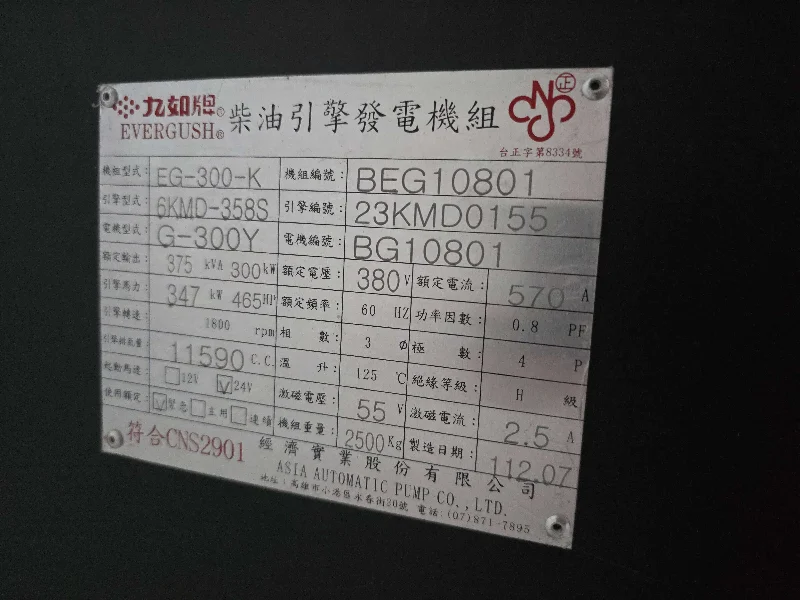 九如牌® 柴油引擎發電機組 正
EVERGUSH®
台正字第8334號
機組型式: EG-300-K 機組編號: BEG10801
引擎型式: 6KMD-358S 引擎編號: 23KMD0155
電機型式: G-300Y 電機編號: BG10801
額定輸出: 375 kVA 300kW 額定電壓: 380 V 額定電流: 570 A
引擎馬力: 347 kW 465HP 額定頻率: 60 HZ 功率因數: 0.8 PF
引擎轉速: 1800 rpm 相數: 3 Ø 極數: 4 P
引擎總氣量: 11590 C.C. 溫升: 125 ℃ 絕緣等級: H 級
起動馬達: □12V ☑24V 激磁電壓: 55 V 激磁電流: 2.5 A
使用額定: ☑緊急 □主用 □連續 機組重量: 2500Kg 製造日期: 112.07
符合CNS2901 經濟實業股份有限公司
ASIA AUTOMATIC PUMP CO.,LTD.
地址:高雄市小港區永春街20號 電話:(07)871-7895